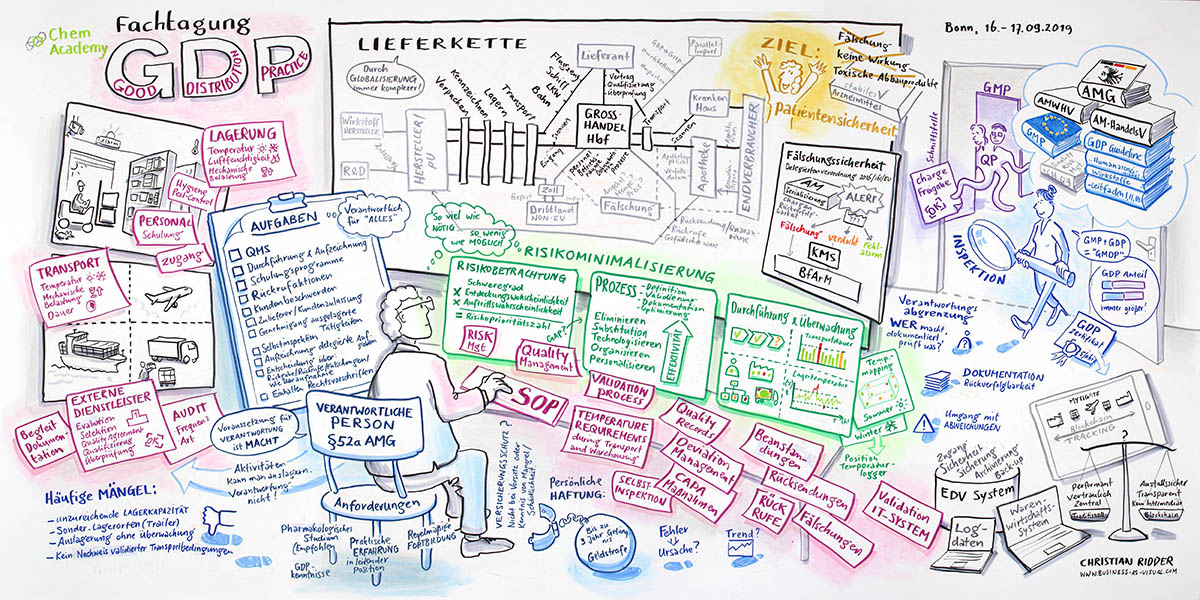 Chem
Academy
Fachtagung
GDP
GOOD
DISTRIBUTION
PRACTICE
Bonn, 16.-17.09.2019
LIEFERKETTE
Durch
GLOBALISIERUNG
immer komplexer!
Wirkstoff
HERSTELLER
R&D
Zulassung
HERSTELLER
PU
Verpacken
Kennzeichnen
Lagern
Transport
Flugzeug
Schiff
LKW
Bahn
Scannen
Eingang
Lieferant
Vertrag
Qualifizierung
Überprüfung
GROSS-
HANDEL
Hbf
Zoll
Import
Drittland
NON-EU
Fälschung
Parallel-
import
Transport
Scannen
Kranken
Haus
Apotheke
ENDVERBRAUCHER
Rücksendung
Rückrufe
ZIEL:
Patientensicherheit
Fälschung
keine Wirkung
Toxische Abbauprodukte
stabiles
Arzneimittel
Fälschungssicherheit
AM
Serialisierung
ALERT
Fälschung
verdacht
Fehl-
alarm
KMS
BfArM
Schnittstelle
GMP
QP
charge
Freigabe
AMG
AMWHV
AM-HandelsV
GMP
GDP Guideline
Humanarznei
Wirkstoffe
-leitfaden I, II, III
INSPEKTION
GMP+GDP
= "GMDP"
GDP Anteil
immer größer!
GDP
zertifikat
5 Jahre
Verantwortungs
abgrenzung
WER macht,
dokumentiert
prüft was?
DOKUMENTATION
Rückverfolgbarkeit
Umgang mit
ABWEICHUNGEN
LAGERUNG
Temperatur
Luftfeuchtigkeit
Mechanische
Belastung
Hygiene
Pest-Control
PERSONAL
Schulung
Zugang
TRANSPORT
Temperatur
Mechanische
Belastung
Dauer
AUFGABEN
QMS
Durchführung & Aufzeichnung
Schulungsprogramme
Rückrufaktionen
Kundenbeschwerden
Zulieferer/Kundenzulassung
Genehmigung ausgelagerte
Tätigkeiten
Selbstinspektion
Aufzeichnung delegierte Auf
gaben
Entscheidung über
Einhalten Rechtsvorschriften
Verantwortlich
für "ALLES"
So viel wie
NÖTIG...
so wenig
wie MÖGLICH
RISIKOMINIMALISIERUNG
RISIKOBETRACHTUNG
Schweregrad
x Entdeckungswahrscheinlichkeit
x Auftrittswahrscheinlichkeit
= Risikoprioritätszahl
GAP?
RISK
Mgt
Quality
Management
PROZESS
-Definition
-Validierung
-Dokumentation
Optimierung
Eliminieren
Substitution
Technologisieren
Organisieren
Personalisieren
EFFEKTIVITÄT
Durchführung & Überwachung
Transportdauer
Lagertemperatur
Temp.
mapping
Sommer
Winter
Position
Temperatur-
logger
SOP
VALIDATION
PROCESS
TEMPERATURE
REQUIREMENTS
during Transport
and Warehousing
Quality
Records
Deviation
Management
CAPA
Maßnahmen
SELBST
INSPEKTION
Beanstan-
dungen
Rücksendungen
RÜCK
RUFE
Fälschungen
Validation
IT-SYSTEM
Begleit
Dokumen-
tation
EXTERNE
DIENSTLEISTER
Evaluation
Selektion
Quality Agreement
Qualifizierung
Überprüfung
AUDIT
Frequenz
Art
Voraussetzung für
VERANTWORTUNG
ist MACHT
Aktivitäten
kann man auslagern.
Verantwortung
nicht!
VERANTWORTLICHE
PERSON
§52a AMG
Anforderungen
Pharmakologisches
Studium
Empfohlen
GDP-
kenntnisse
Praktische
ERFAHRUNG
in leitender
Position
Regelmäßige
FORTBILDUNG
Häufige MÄNGEL:
- unzureichende LAGERKAPAZITÄT
- Sonder-Lagerorten (Trailer)
- Auslagerung ohne Überwachung
- Kein Nachweis validierter Transportbedingungen
VERSICHERUNGSSCHUTZ?
Nicht bei Vorsatz oder
Kenntnis von Mängel/
Schadhaftigkeit
Persönliche
HAFTUNG:
Bis zu
3 Jahr Gefäng
nis
Geldstrafe
Fehler
Ursache?
Trend?
Zugang
Sicherheit
Sicherung
Archivierung
Back-up
EDV System
Log-
daten
Waren
wirtschafts-
system
Blockchain
TRACKING
Performant
Vertraulich
Zentral
Traditional
Ausfallsicher
Transparent
Kein Intermediär
Blockchain
CHRISTIAN RIDDER
WWW.BUSINESS-AS-VISUAL.COM